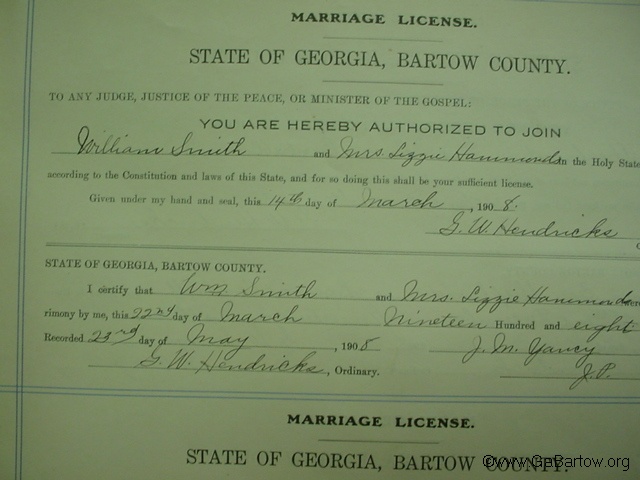 MARRIAGE LICENSE.
STATE OF GEORGIA, BARTOW COUNTY.
TO ANY JUDGE, JUSTICE OF THE PEACE, OR MINISTER OF THE GOSPEL:
YOU ARE HEREBY AUTHORIZED TO JOIN
William Smith and Mrs. Lizzie Hammonds in the Holy State
according to the Constitution and laws of this State, and for so doing this shall be your sufficient license.
Given under my hand and seal, this 14th day of March, 1908.
G. W. Hendricks
STATE OF GEORGIA, BARTOW COUNTY.
I certify that Wm Smith and Mrs. Lizzie Hammonds were
rimony by me, this 22nd day of March Nineteen Hundred and eight
Recorded 23rd day of May, 1908 J. M. Yancy
G. W. Hendricks, Ordinary. J.P.
MARRIAGE LICENSE.
STATE OF GEORGIA, BARTOW COUNTY.
©www.GaBartow.org